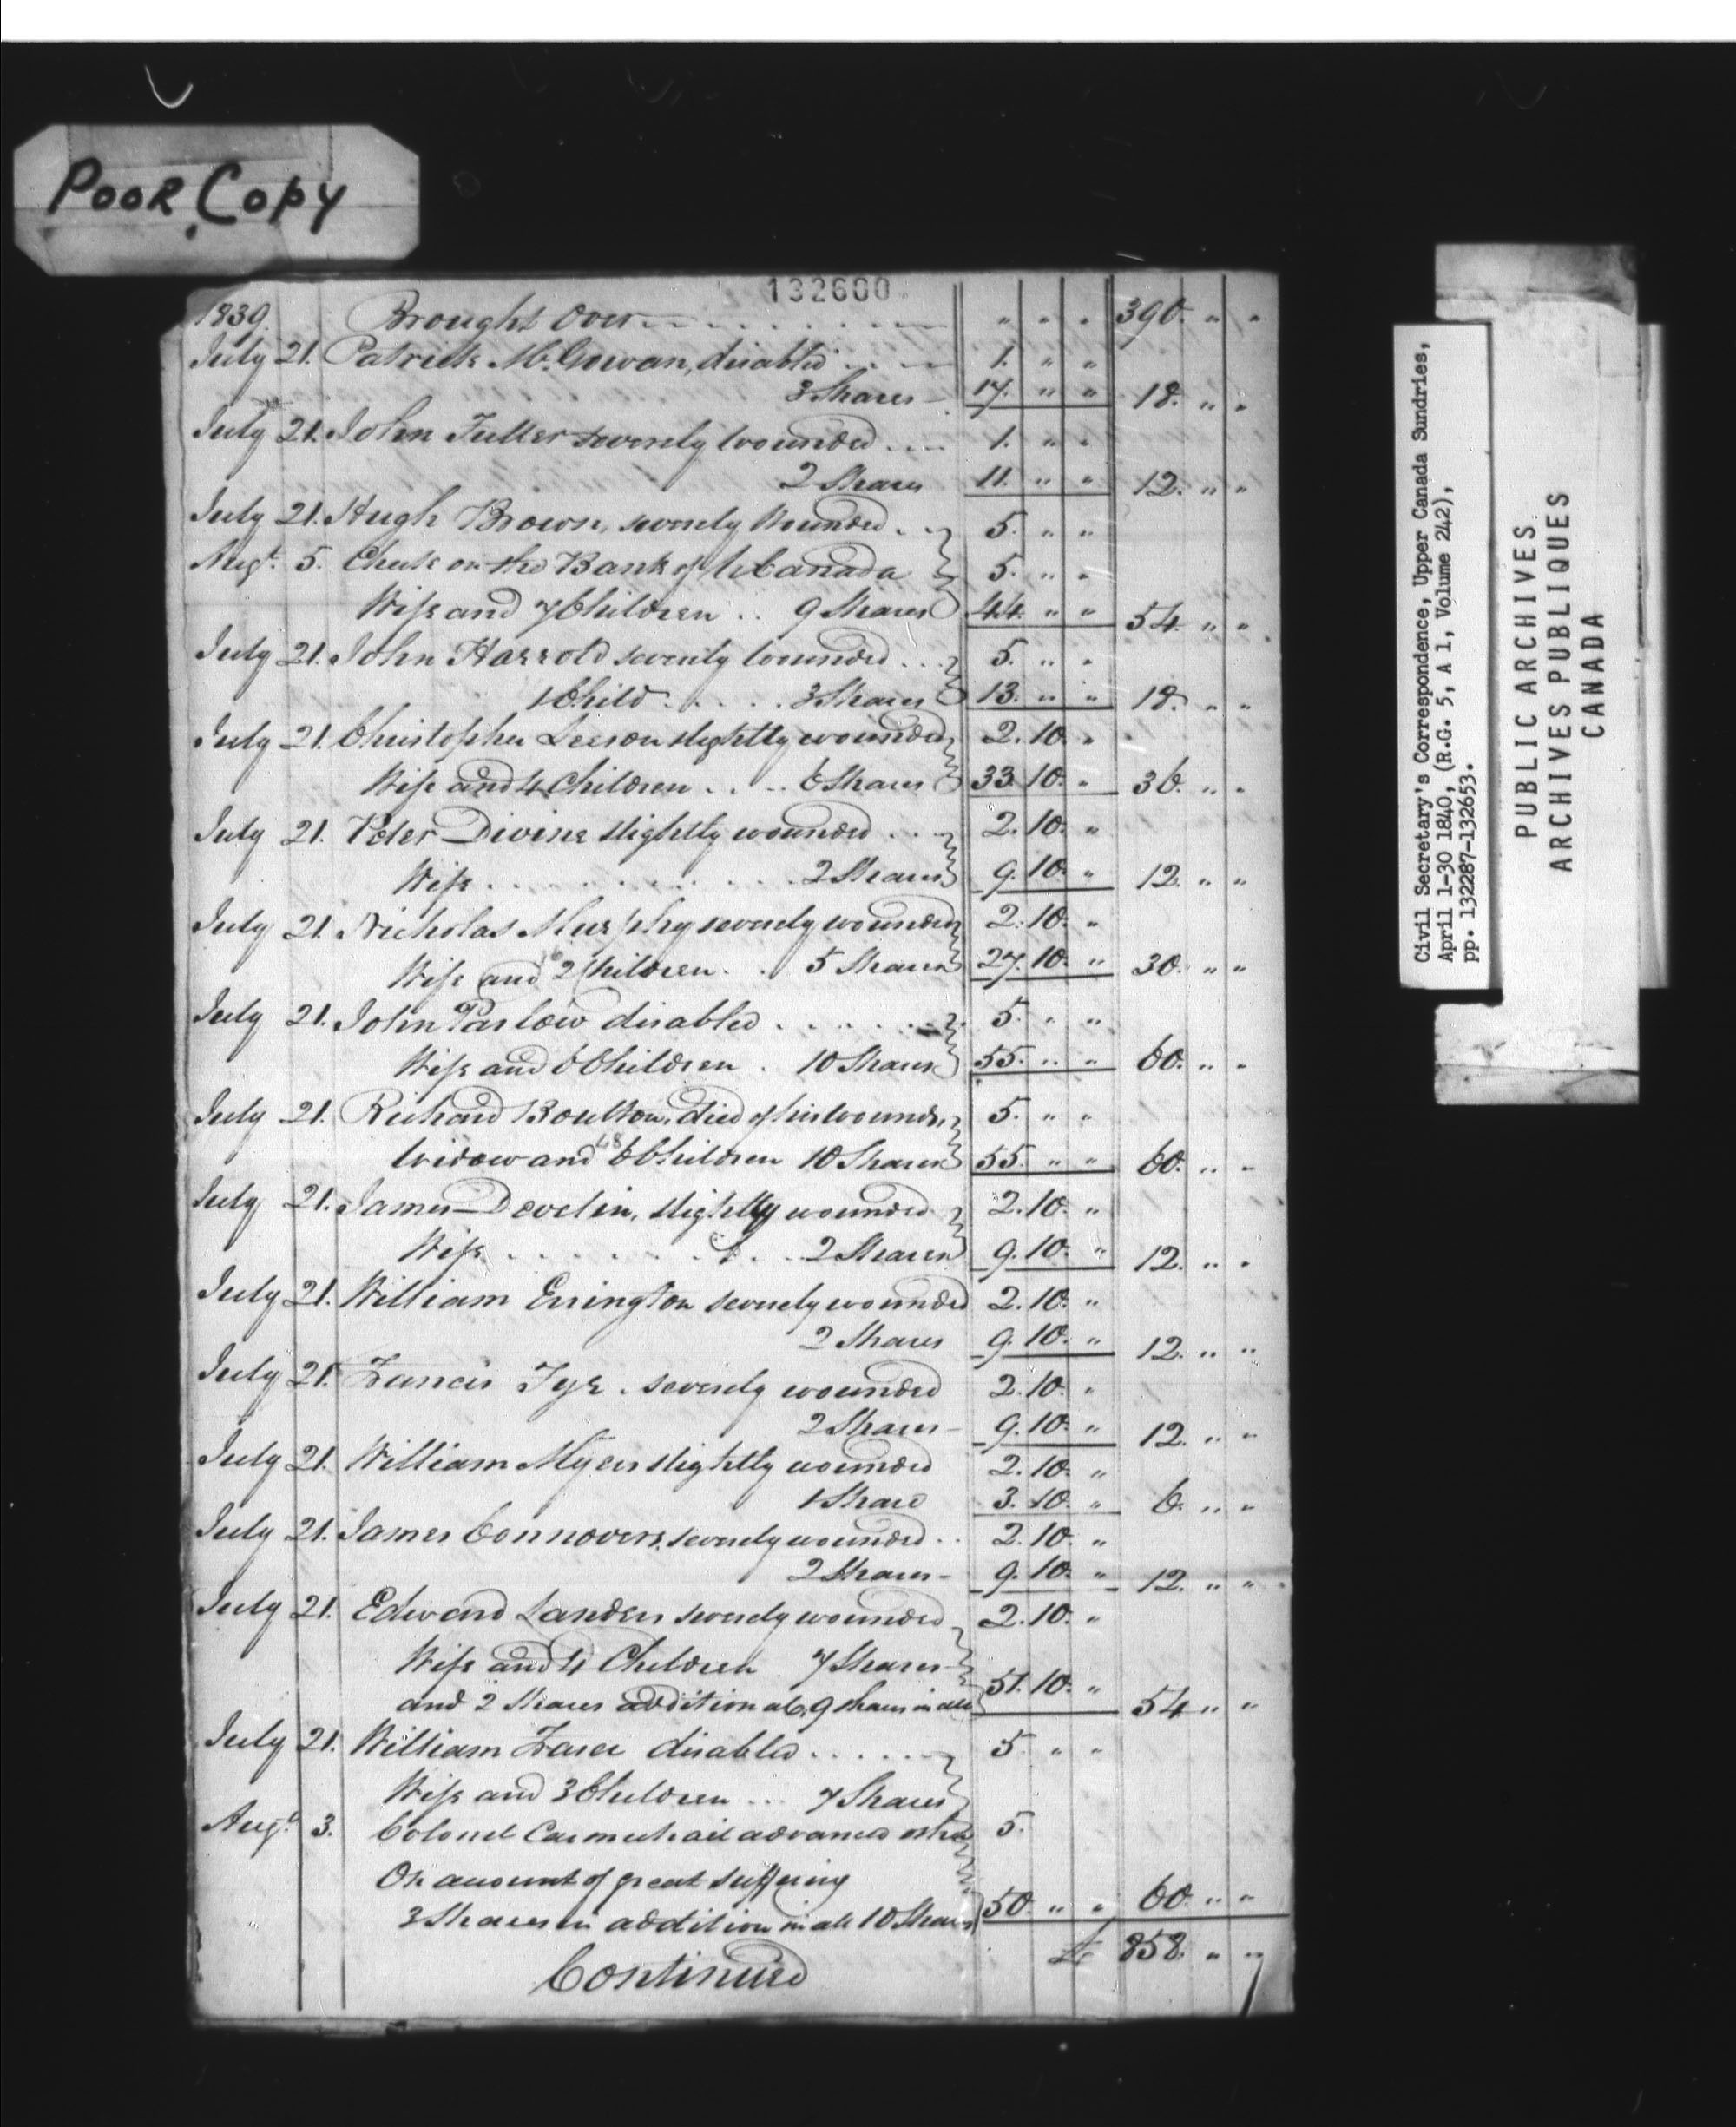 POOR COPY
132600
1839. Brought Over " " " 390. " "
July 21. Patrick McGowan, disabled 1. " "
3 Shares 17. " " 18. " "
July 21. John Fuller severely wounded 1. " "
2 Shares 11. " " 12. " "
July 21. Hugh Brown, severely Wounded 5. " "
Augt. 5. Check on the Bank of U. Canada 5. " "
Wife and 7 Children .. 9 Shares 44. " " 54. " "
July 21. John Harrold severely wounded 5. " "
1 Child . . . . 3 Shares 13. " " 18. " "
July 21. Christopher Leeson slightly wounded 2. 10. "
Wife and 4 Children . . 6 Shares 33. 10. " 36. " "
July 21. Peter Divine slightly wounded 2. 10. "
Wife . . . . 2 Shares 9. 10. " 12. " "
July 21. Nicholas Murphy severely wounded 2. 10. "
Wife and 2 Children . . 5 Shares 27. 10. " 30. " "
July 21. John Parlow disabled 5. " "
Wife and 6 Children . 10 Shares 55. " " 60. " "
July 21. Richard Boulton, died of his wounds, 5. " "
Widow and 6 Children 10 Shares 55. " " 60. " "
July 21. James Develin, slightly wounded 2. 10. "
Wife . . . . 2 Shares 9. 10. " 12. " "
July 21. William Errington severely wounded 2. 10. "
2 Shares 9. 10. " 12. " "
July 21. Francis Tyr . severely wounded 2. 10. "
2 Shares 9. 10. " 12. " "
July 21. William Myers slightly wounded 2. 10. "
1 Share 3. 10. " 6. " "
July 21. James Connovers, severely wounded 2. 10. "
2 Shares 9. 10. " 12. " "
July 21. Edward Landers severely wounded 2. 10. "
Wife and 4 Children 7 Shares
and 2 Shares additional, 9 shares in all 51. 10. " 54. " "
July 21. William Fraser disabled 5. " "
Wife and 3 Children ... 7 Shares
Augt. 3. Colonel Carmichael advanced extra 5.
On amount of great suffering
3 Shares in addition in all 10 Shares 50. " " 60. " "
£ 858. " "
Continued
Civil Secretary's Correspondence, Upper Canada Sundries,
April 1-30 1840, (R.G. 5, A 1, Volume 242),
pp. 132287-132653.
PUBLIC ARCHIVES
ARCHIVES PUBLIQUES
CANADA